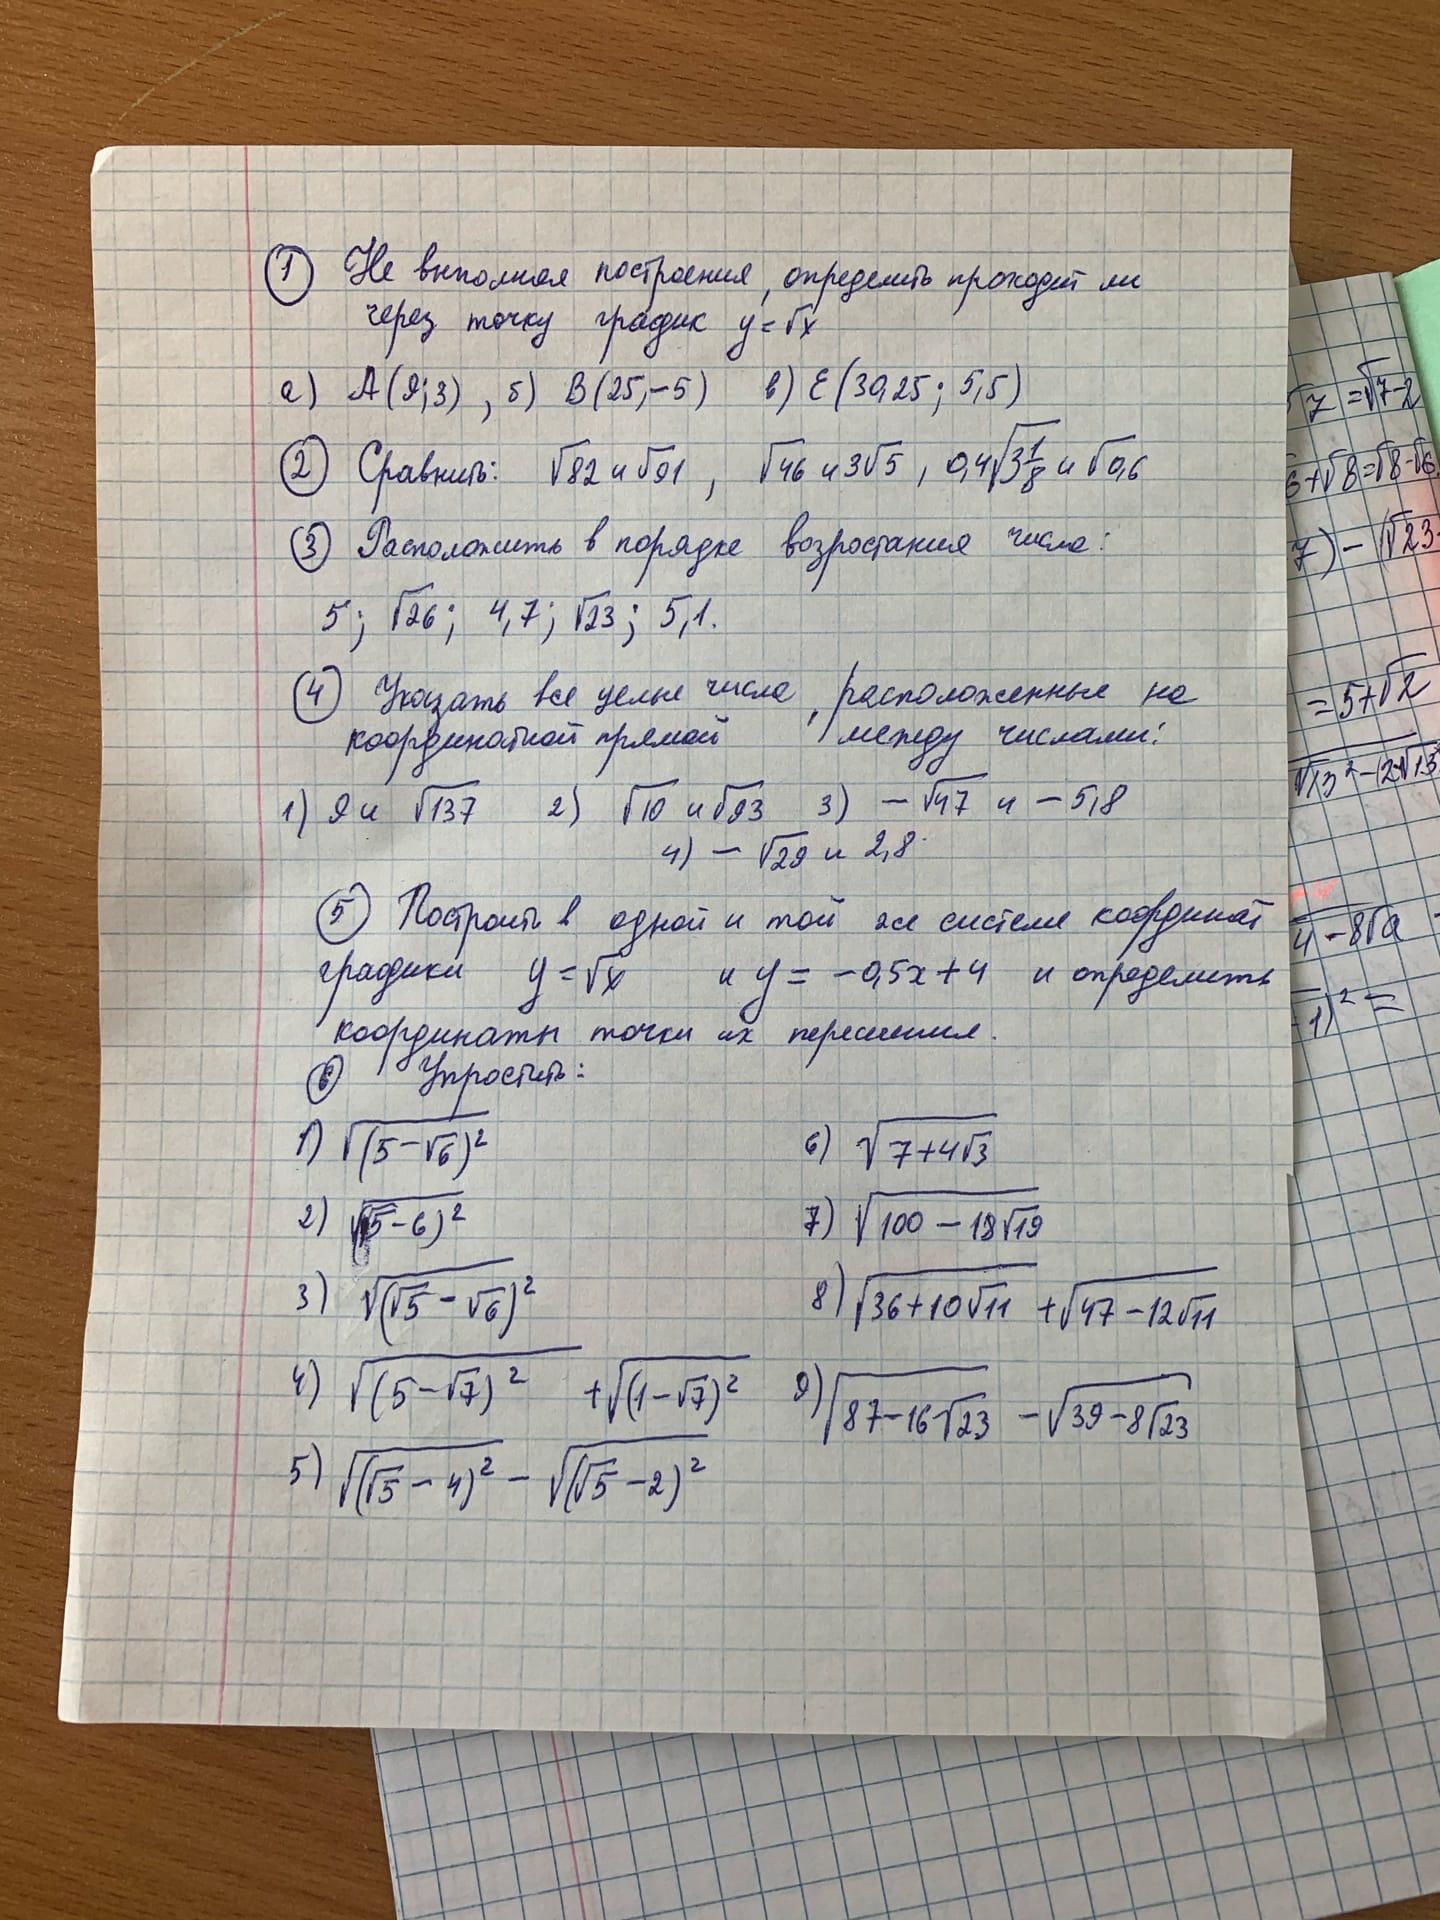 ① Не выполняя построения, определить проходит ли
через точку график y = √x
а) A(9;3), б) B(25,-5) в) E(30,25; 5,5)
② Сравнить: √82 и √91, √46 и 3√5, 0,4√3 1/8 и √0,6
③ Расположить в порядке возростания числа:
5; √26; 4,7; √23; 5,1.
④ Указать все целые числа, расположенные на
координатной прямой между числами:
1) 9 и √137 2) √10 и √93 3) -√47 и -5,8
4) -√29 и 2,8.
⑤ Построить в одной и той же системе координат
графики y = √x и y = -0,5x+4 и определить
координаты точки их пересечения.
⑥ Упростить:
1) √(5-√6)² 6) √7+4√3
2) √(√5-6)² 7) √100-18√19
3) √(√5-√6)² 8) √36+10√11 + √47-12√11
4) √(5-√7)² + √(1-√7)² 9) √87-16√23 - √39-8√23
5) √(√5-4)² - √(√5-2)²
√7 = √7-2
6+√8=√8-√6
7)-(√23
=5+√2
√13²-12√13
4-8√a
-1)²=